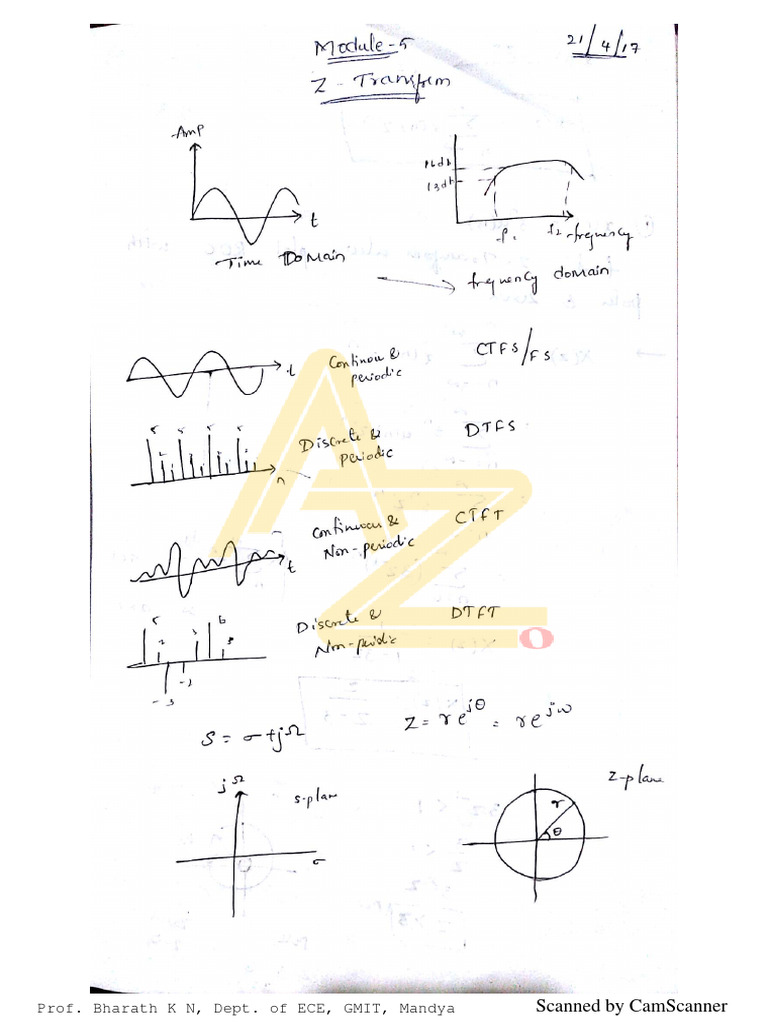 Module-5
21/4/17
Z - Transfrm
Amp
t
Time Domain
13db
f1
f2 frequency
frequency domain
t
Continou &
periodic
CTFS/FS
5 5 5 5
n
Discrete &
periodic
DTFS
t
Continuou &
Non-periodic
CTFT
5 2 -3 -2 6
Discrete &
Non-peridic
DTFT
AZO
S = σ+jΩ
Z = re^jθ = re^jω
jΩ
s-plane
σ
Z-plane
r
θ
Prof. Bharath K N, Dept. of ECE, GMIT, Mandya
Scanned by CamScanner